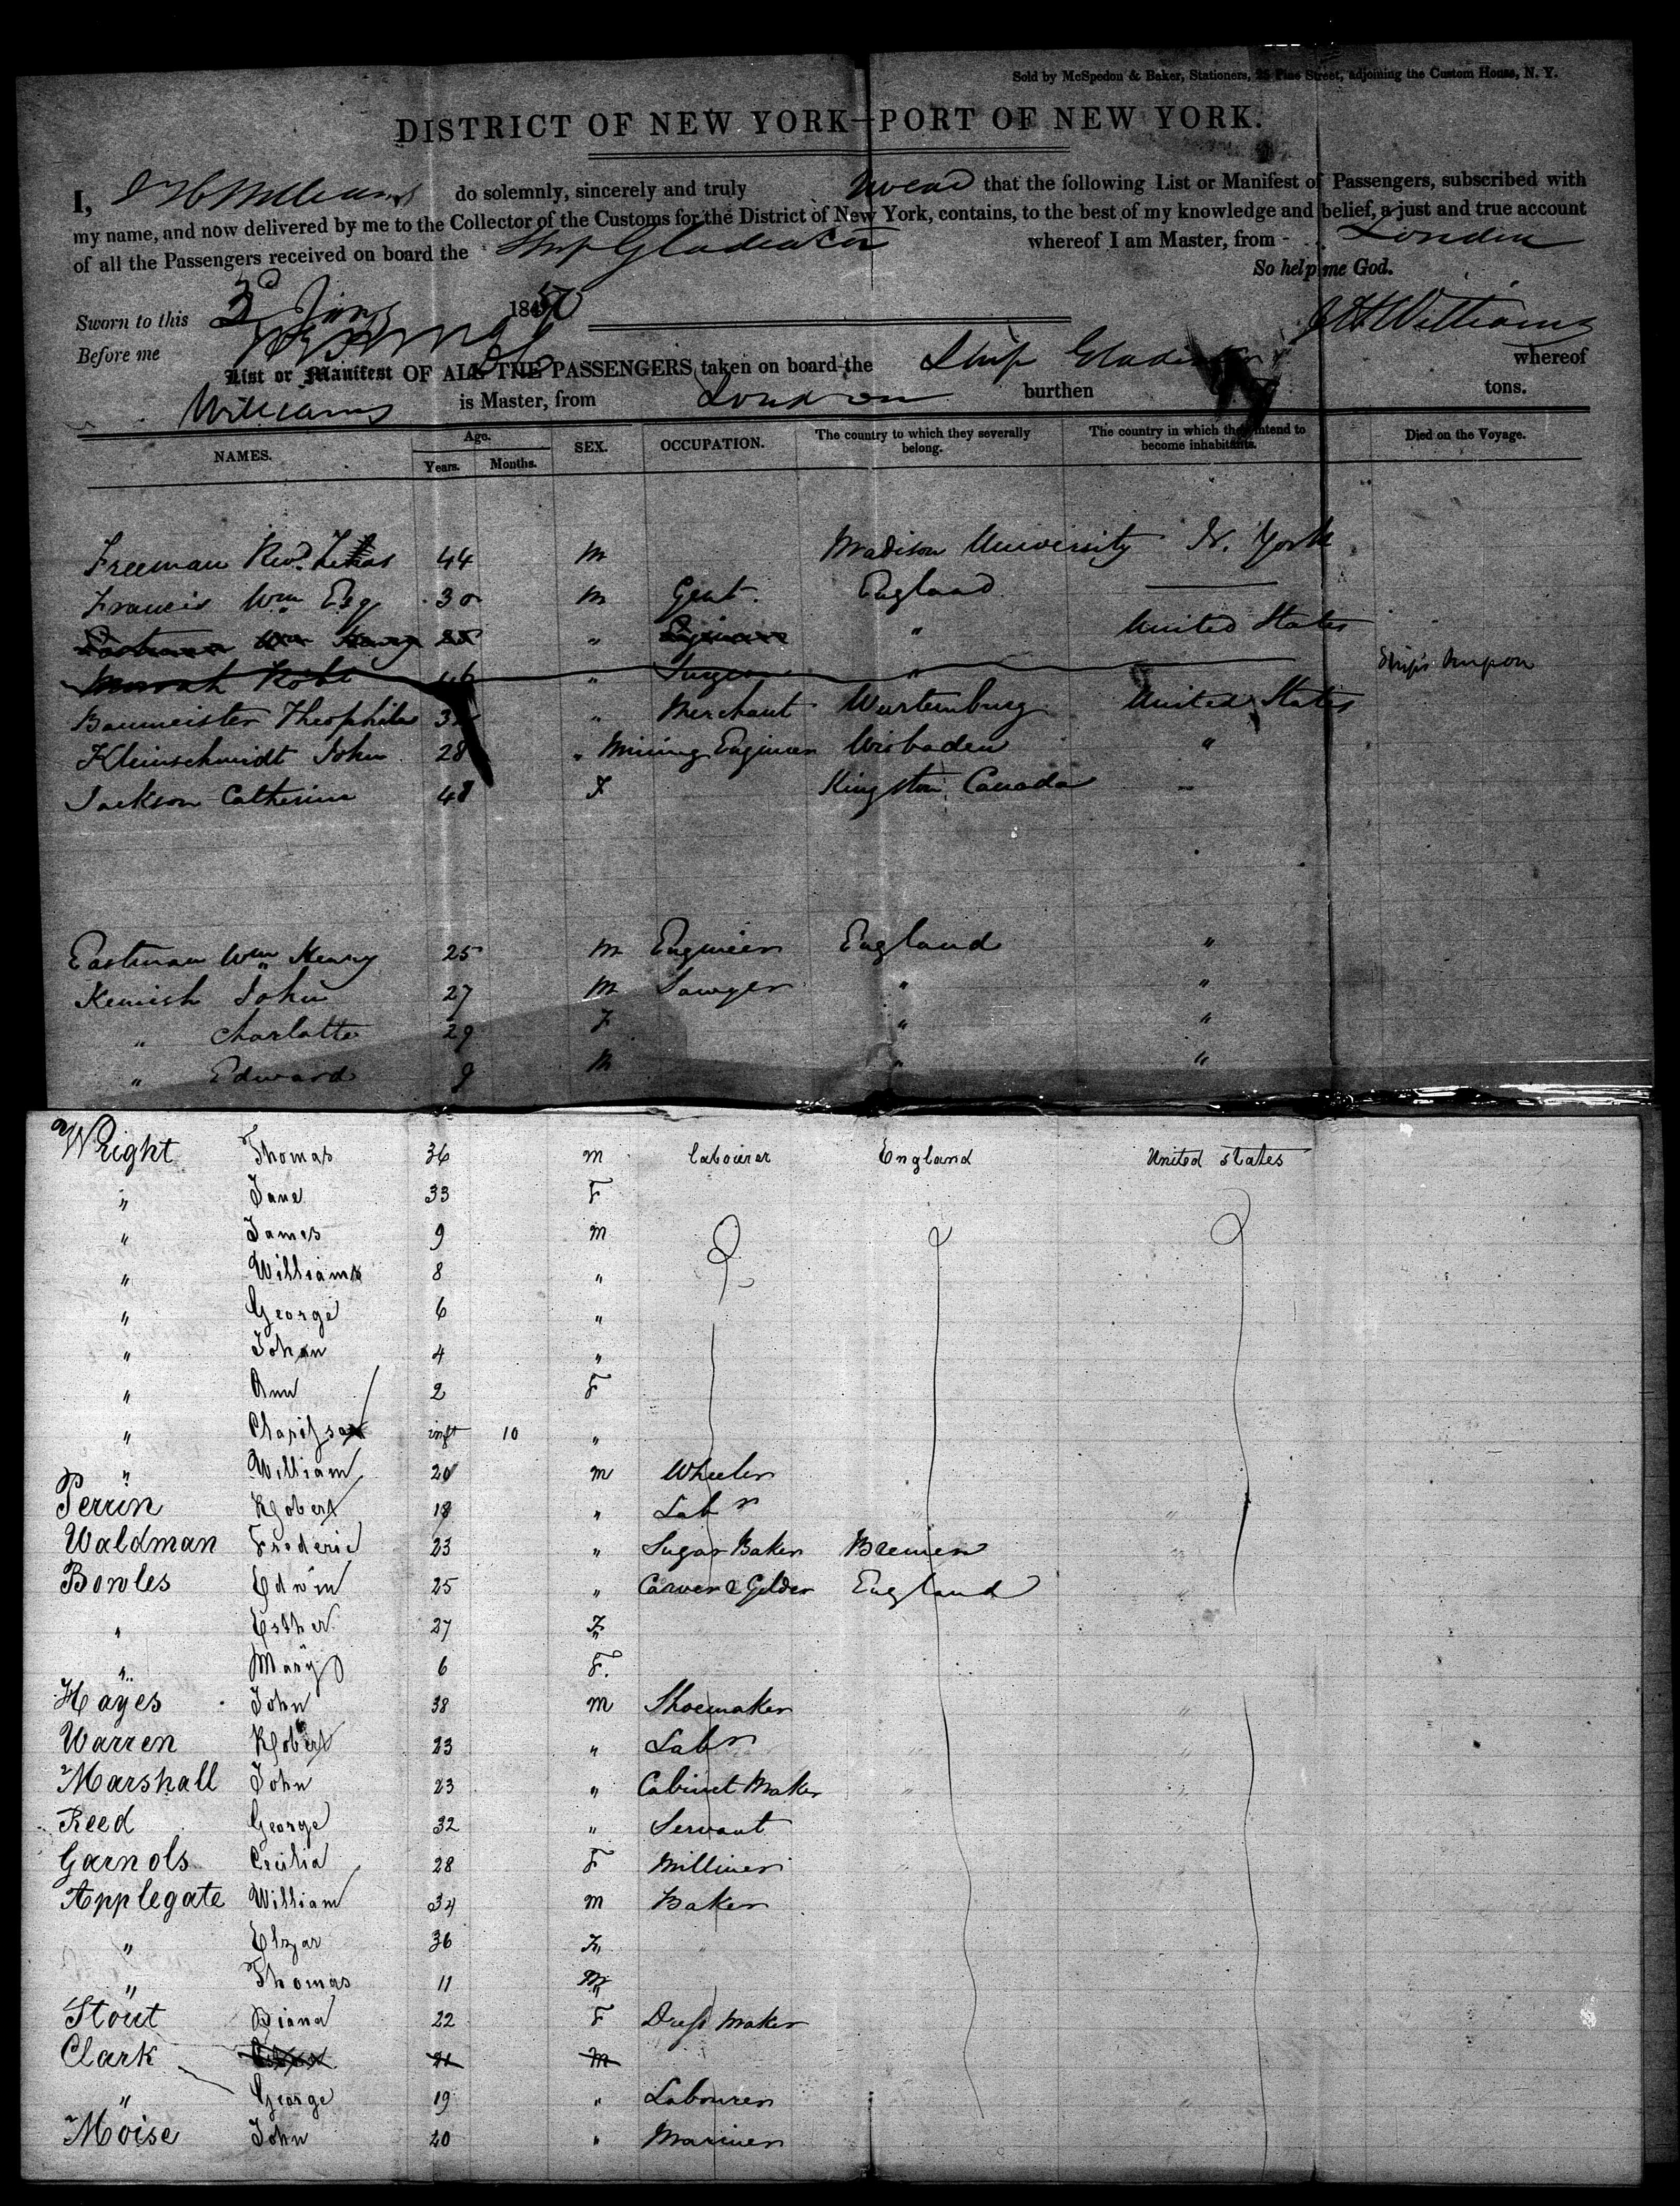 Sold by McSpedon & Baker, Stationers, 25 Pine Street, adjoining the Custom House, N. Y.
DISTRICT OF NEW YORK—PORT OF NEW YORK.
I, J H Williams do solemnly, sincerely and truly swear that the following List or Manifest of Passengers, subscribed with
my name, and now delivered by me to the Collector of the Customs for the District of New York, contains, to the best of my knowledge and belief, a just and true account
of all the Passengers received on board the Ship Gladiator whereof I am Master, from London
So help me God.
Sworn to this 3d 1850
J H Williams
Before me
List or Manifest OF ALL THE PASSENGERS taken on board the Ship Gladiator whereof
Williams is Master, from London burthen tons.
NAMES. Age. Years. Months. SEX. OCCUPATION. The country to which they severally belong. The country in which they intend to become inhabitants. Died on the Voyage.
Freeman Revd. 44 M Madison University N. York
Francis Wm Esq 30 M Gent. England
Eastman Wm Henry 25 " Engineer " United States
Robt 46 " Surgeon " Ship's
Baumeister Theophile " Merchant Wurtemburg United States
Kleinschmidt John 28 " Mining Engineer Wisbaden "
Jackson Catherine 48 F Kingston Canada "
Eastman Wm Henry 25 M Engineer England "
Kemish John 27 M Sawyer " "
" Charlotte 29 F " "
" Edward 9 M " "
Wright Thomas 36 m labourer England United states
" Jane 33 F
" James 9 m
" William 8 "
" George 6 "
" John 4 "
" Ann 2 F
" Clarissa inft 10 "
" William 20 m Wheeler
Perrin Robert 18 " Labr
Waldman Frederic 23 " Sugar Baker Bremen "
Bowles Edwin 25 " Carver & Gilder England "
" Esther 27 F
" Mary 6 F.
Hayes John 38 m Shoemaker "
Warren Robert 23 " Labr "
Marshall John 23 " Cabinet Maker " "
Reed George 32 " Servant
Garnols Cecilia 28 F Milliner
Applegate William 34 m Baker
" Elzar 36 F
" Thomas 11 M
Stout Diana 22 F Dress Maker
Clark 21 M
" George 19 " Labourer
Moise John 20 " Mariner